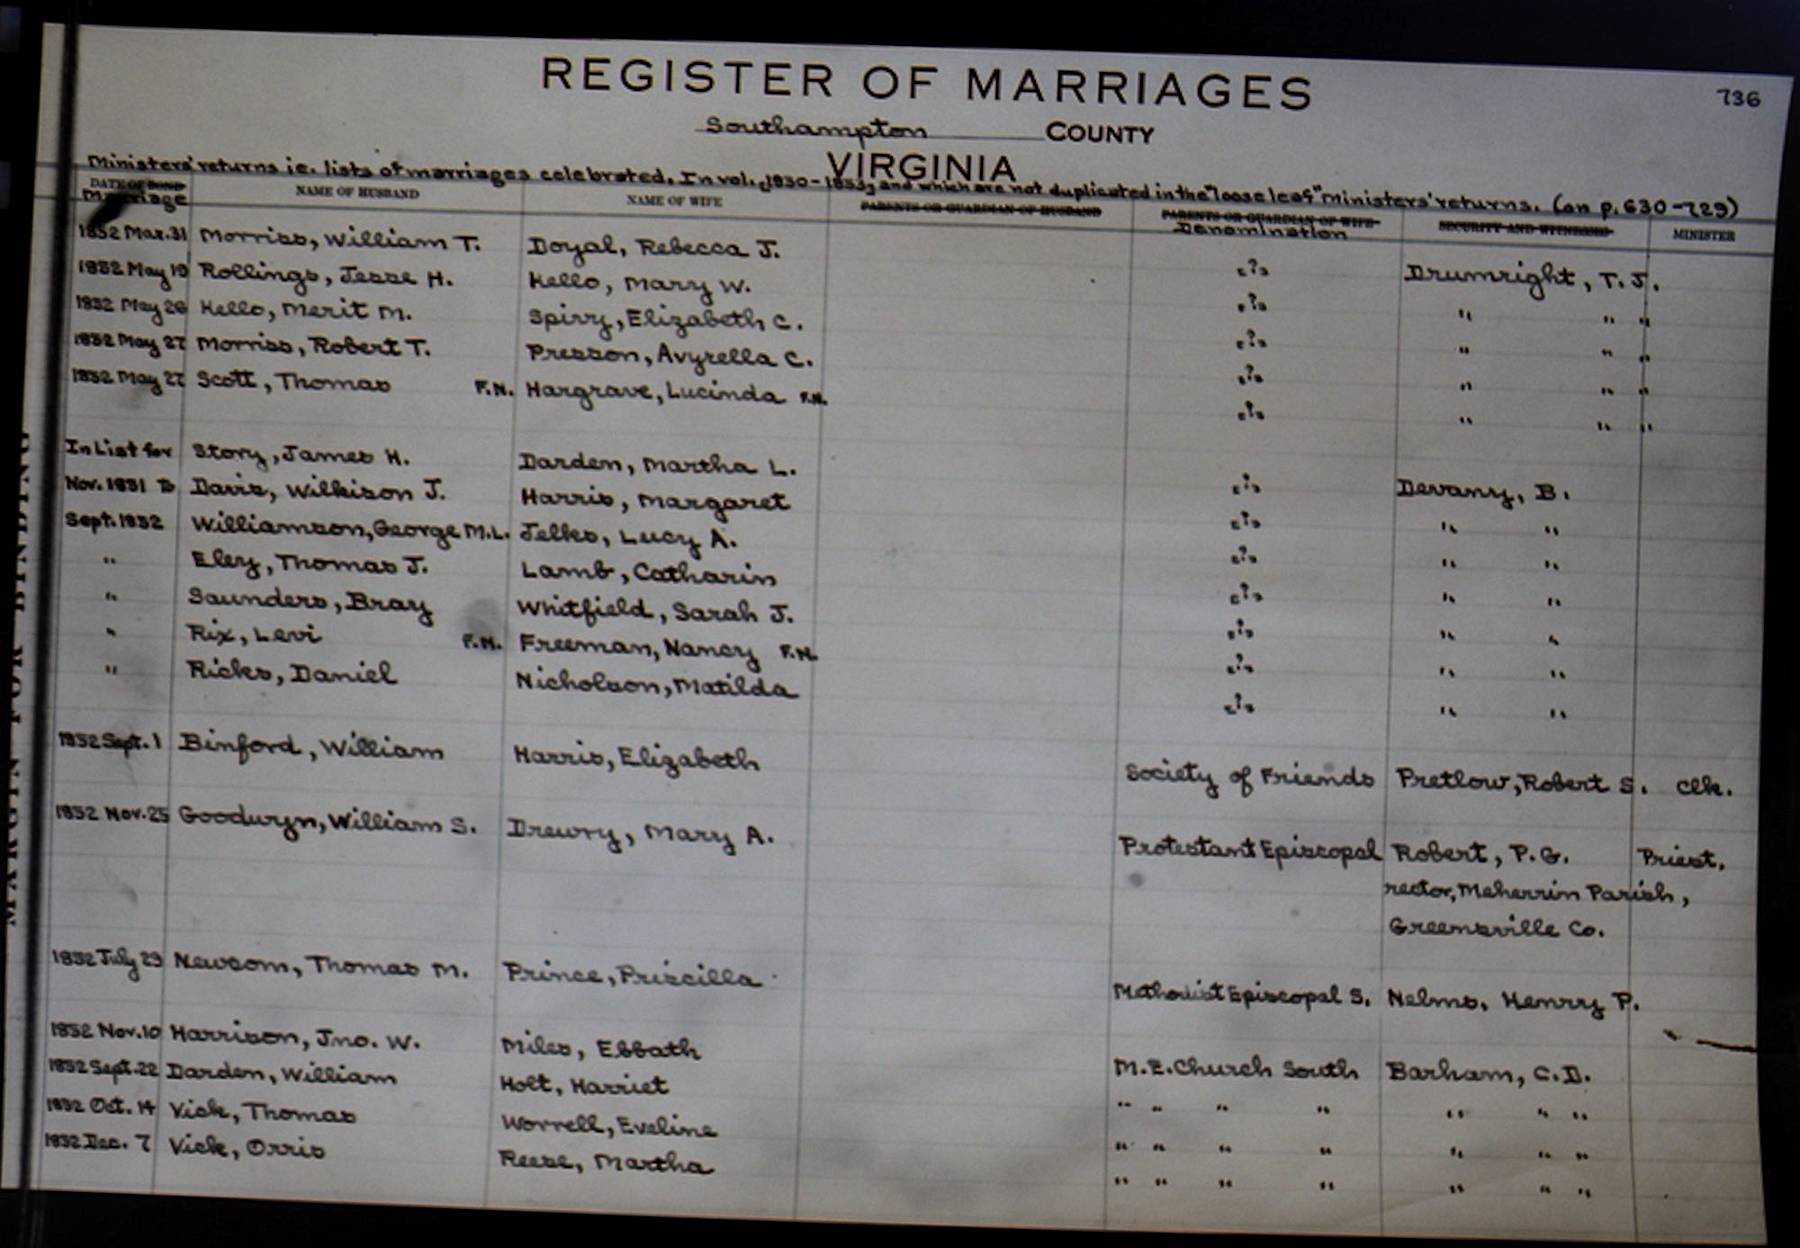 REGISTER OF MARRIAGES
736
Southampton COUNTY
VIRGINIA
Ministers' returns ie. lists of marriages celebrated. In vol. and which are not duplicated in the "loose leaf" ministers' returns. (on p. 630-729)
DATE OF BOND NAME OF HUSBAND NAME OF WIFE PARENTS OR GUARDIAN OF HUSBAND PARENTS OR GUARDIAN OF WIFE SECURITY AND WITNESSES MINISTER
Marriage Denomination
1852 Mar. 31 Morriss, William T. Doyal, Rebecca J. "?" Drumright, T. J.
1852 May 19 Rollings, Jesse H. Kello, Mary W. "?" " " "
1852 May 26 Kello, Merit M. Spivy, Elizabeth C. "?" " " "
1852 May 27 Morriss, Robert T. Presson, Avyrella C. "?" " " "
1852 May 27 Scott, Thomas F.N. Hargrave, Lucinda F.N. "?" " " "
In List for Story, James H. Darden, Martha L. "?" Devany, B.
Nov. 1851 to Davis, Wilkison J. Harris, Margaret "?" " "
Sept. 1852 Williamson, George M.L. Jelks, Lucy A. "?" " "
" Eley, Thomas J. Lamb, Catharin "?" " "
" Saunders, Bray Whitfield, Sarah J. "?" " "
" Rix, Levi F.N. Freeman, Nancy F.N. "?" " "
" Ricks, Daniel Nicholson, Matilda "?" " "
1852 Sept. 1 Binford, William Harris, Elizabeth Society of Friends Pretlow, Robert S. Clk.
1852 Nov. 25 Goodwyn, William S. Drewry, Mary A. Protestant Episcopal Robert, P. G. Priest,
rector, Meherrin Parish,
Greensville Co.
1852 July 29 Newsom, Thomas M. Prince, Priscilla Methodist Episcopal S. Nelms, Henry P.
1852 Nov. 10 Harrison, Jno. W. Miles, Ebbath M.E. Church South Barham, C. D.
1852 Sept. 22 Darden, William Holt, Harriet " " " " " " "
1852 Oct. 14 Vick, Thomas Worrell, Eveline " " " " " " "
1852 Dec. 7 Vick, Orris Reese, Martha " " " " " " "
MARGIN FOR BINDING